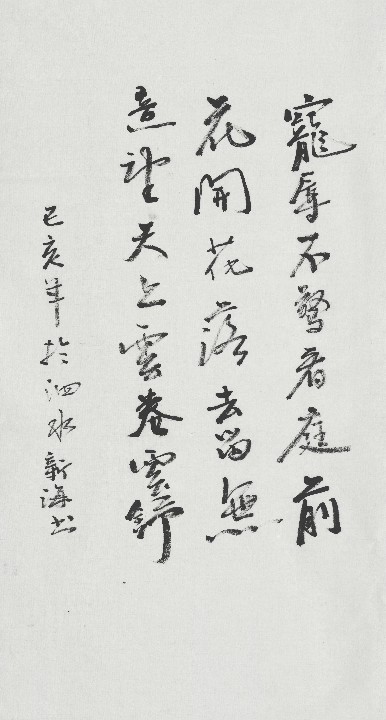 寵辱不驚看庭前
花開花落去留無
意望天上雲卷雲舒
己亥年於泗水新海书